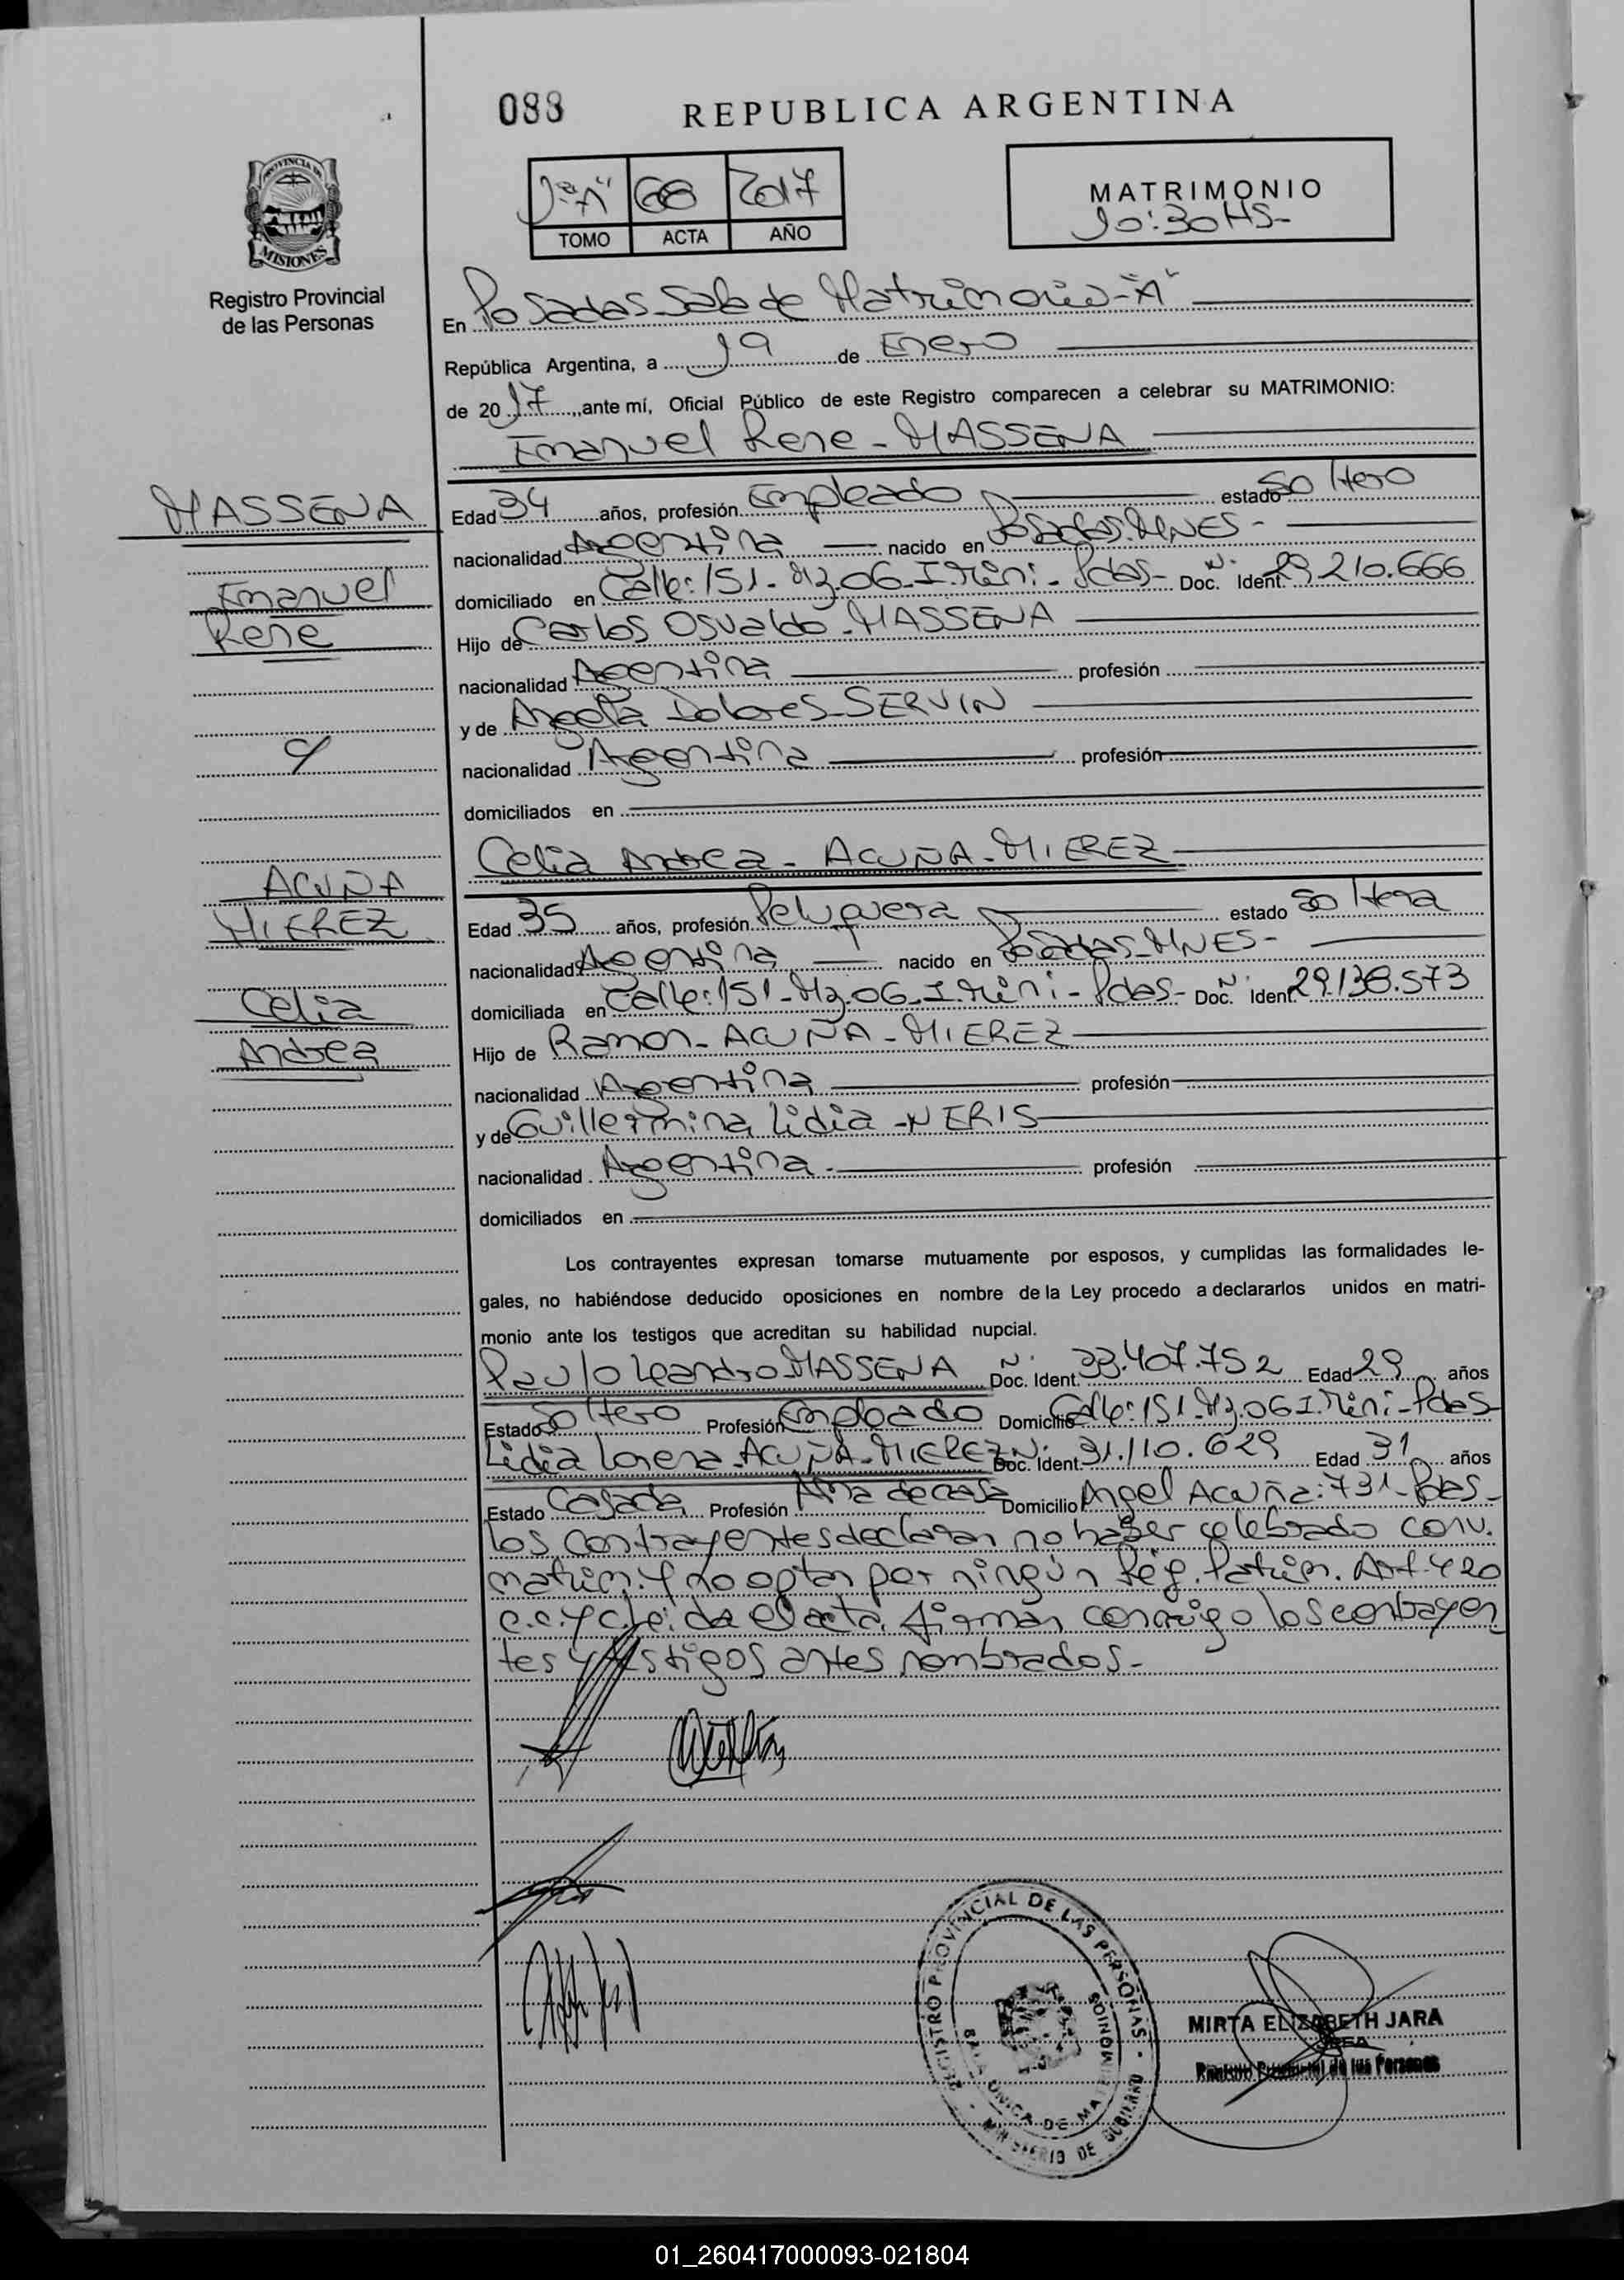 088
REPUBLICA ARGENTINA
PROVINCIA DE
MISIONES
Registro Provincial
de las Personas
1º"A" 68 2017
TOMO ACTA AÑO
MATRIMONIO
10:30 HS-
En Posadas Sala de Matrimonio-"A"
República Argentina, a 19 de Enero
de 2017, ante mí, Oficial Público de este Registro comparecen a celebrar su MATRIMONIO:
Emanuel Rene - MASSENA
MASSENA
Edad 34 años, profesión Empleado estado Soltero
nacionalidad Argentina nacido en Posadas. MNES-
Emanuel
domiciliado en Calle: 151- Mz. 06-I. Mini- Pdas- Doc. Ident. Nº 29.210.666
Rene
Hijo de Carlos Osvaldo-MASSENA
nacionalidad Argentina profesión
y de Angela Dolores-SERVIN
c/
nacionalidad Argentina profesión
domiciliados en
Celia Andrea- ACUÑA-MIEREZ
ACUÑA
MIEREZ
Edad 35 años, profesión Peluquera estado Soltera
nacionalidad Argentina nacido en Posadas-MNES-
Celia
domiciliada en Calle: 151-Mz. 06-I. Mini- Pdas- Doc. Ident. Nº 29.138.573
Andrea
Hijo de Ramon- ACUÑA-MIEREZ
nacionalidad Argentina profesión
y de Guillermina Lidia -NERIS
nacionalidad Argentina- profesión
domiciliados en
Los contrayentes expresan tomarse mutuamente por esposos, y cumplidas las formalidades le-
gales, no habiéndose deducido oposiciones en nombre de la Ley procedo a declararlos unidos en matri-
monio ante los testigos que acreditan su habilidad nupcial.
Paulo Leandro MASSENA Doc. Ident. Nº 33.407.752 Edad 29 años
Estado Soltero Profesión Empleado Domicilio Calle: 151-Mz. 06 I. Mini- Pdas
Lidia Lorena-ACUÑA-MIEREZ Doc. Ident. Nº 31.110.629 Edad 31 años
Estado Casada Profesión Ama de casa Domicilio Angel Acuña: 731- Pdas-
los contrayentes declaran no haber celebrado conv.
matrim. y no optan por ningún Rég. Patrim. Art. 420
c.c.y c. leida el acta, firman conmigo los contrayen
tes y testigos antes nombrados-
REGISTRO PROVINCIAL DE LAS PERSONAS - MINISTERIO DE GOBIERNO
SALA UNICA DE MATRIMONIOS
MIRTA ELIZABETH JARA
Registro Provincial de las Personas
01_260417000093-021804